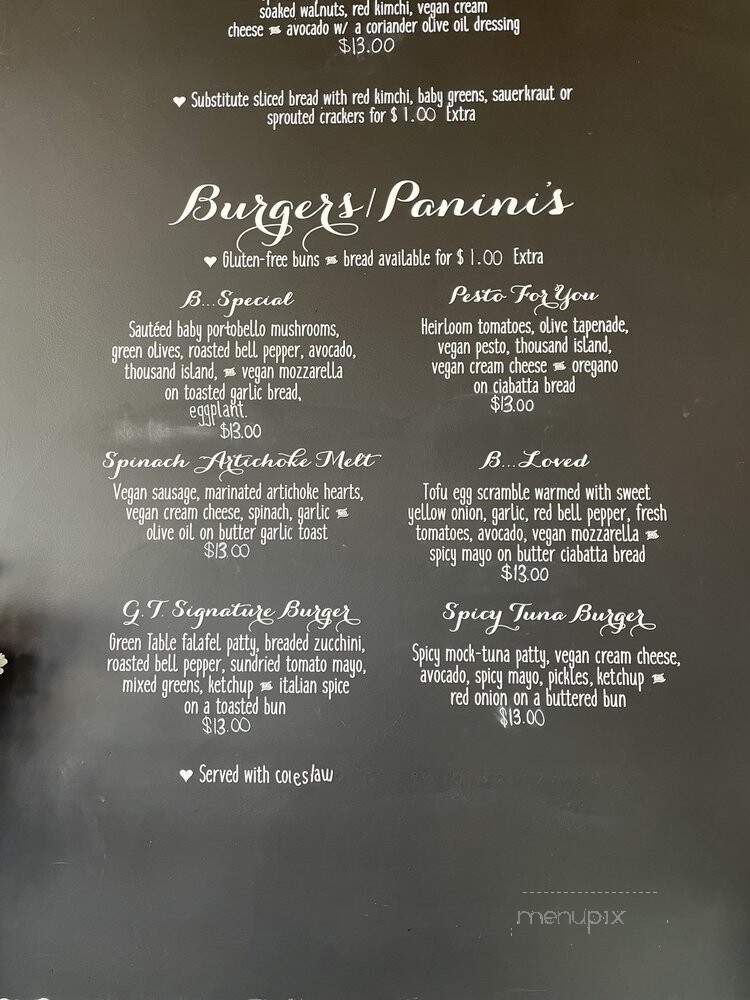 soaked walnuts, red kimchi, vegan cream
cheese & avocado w/ a coriander olive oil dressing
$13.00
♥ Substitute sliced bread with red kimchi, baby greens, sauerkraut or
sprouted crackers for $1.00 Extra
Burgers/Panini's
♥ Gluten-free buns & bread available for $1.00 Extra
B...Special
Sautéed baby portobello mushrooms,
green olives, roasted bell pepper, avocado,
thousand island, & vegan mozzarella
on toasted garlic bread,
eggplant.
$13.00
Pesto For You
Heirloom tomatoes, olive tapenade,
vegan pesto, thousand island,
vegan cream cheese & oregano
on ciabatta bread
$13.00
Spinach Artichoke Melt
Vegan sausage, marinated artichoke hearts,
vegan cream cheese, spinach, garlic &
olive oil on butter garlic toast
$13.00
B...Loved
Tofu egg scramble warmed with sweet
yellow onion, garlic, red bell pepper, fresh
tomatoes, avocado, vegan mozzarella &
spicy mayo on butter ciabatta bread
$13.00
G.T. Signature Burger
Green Table falafel patty, breaded zucchini,
roasted bell pepper, sundried tomato mayo,
mixed greens, ketchup & italian spice
on a toasted bun
$13.00
Spicy Tuna Burger
Spicy mock-tuna patty, vegan cream cheese,
avocado, spicy mayo, pickles, ketchup &
red onion on a buttered bun
$13.00
♥ Served with coleslaw
menupix